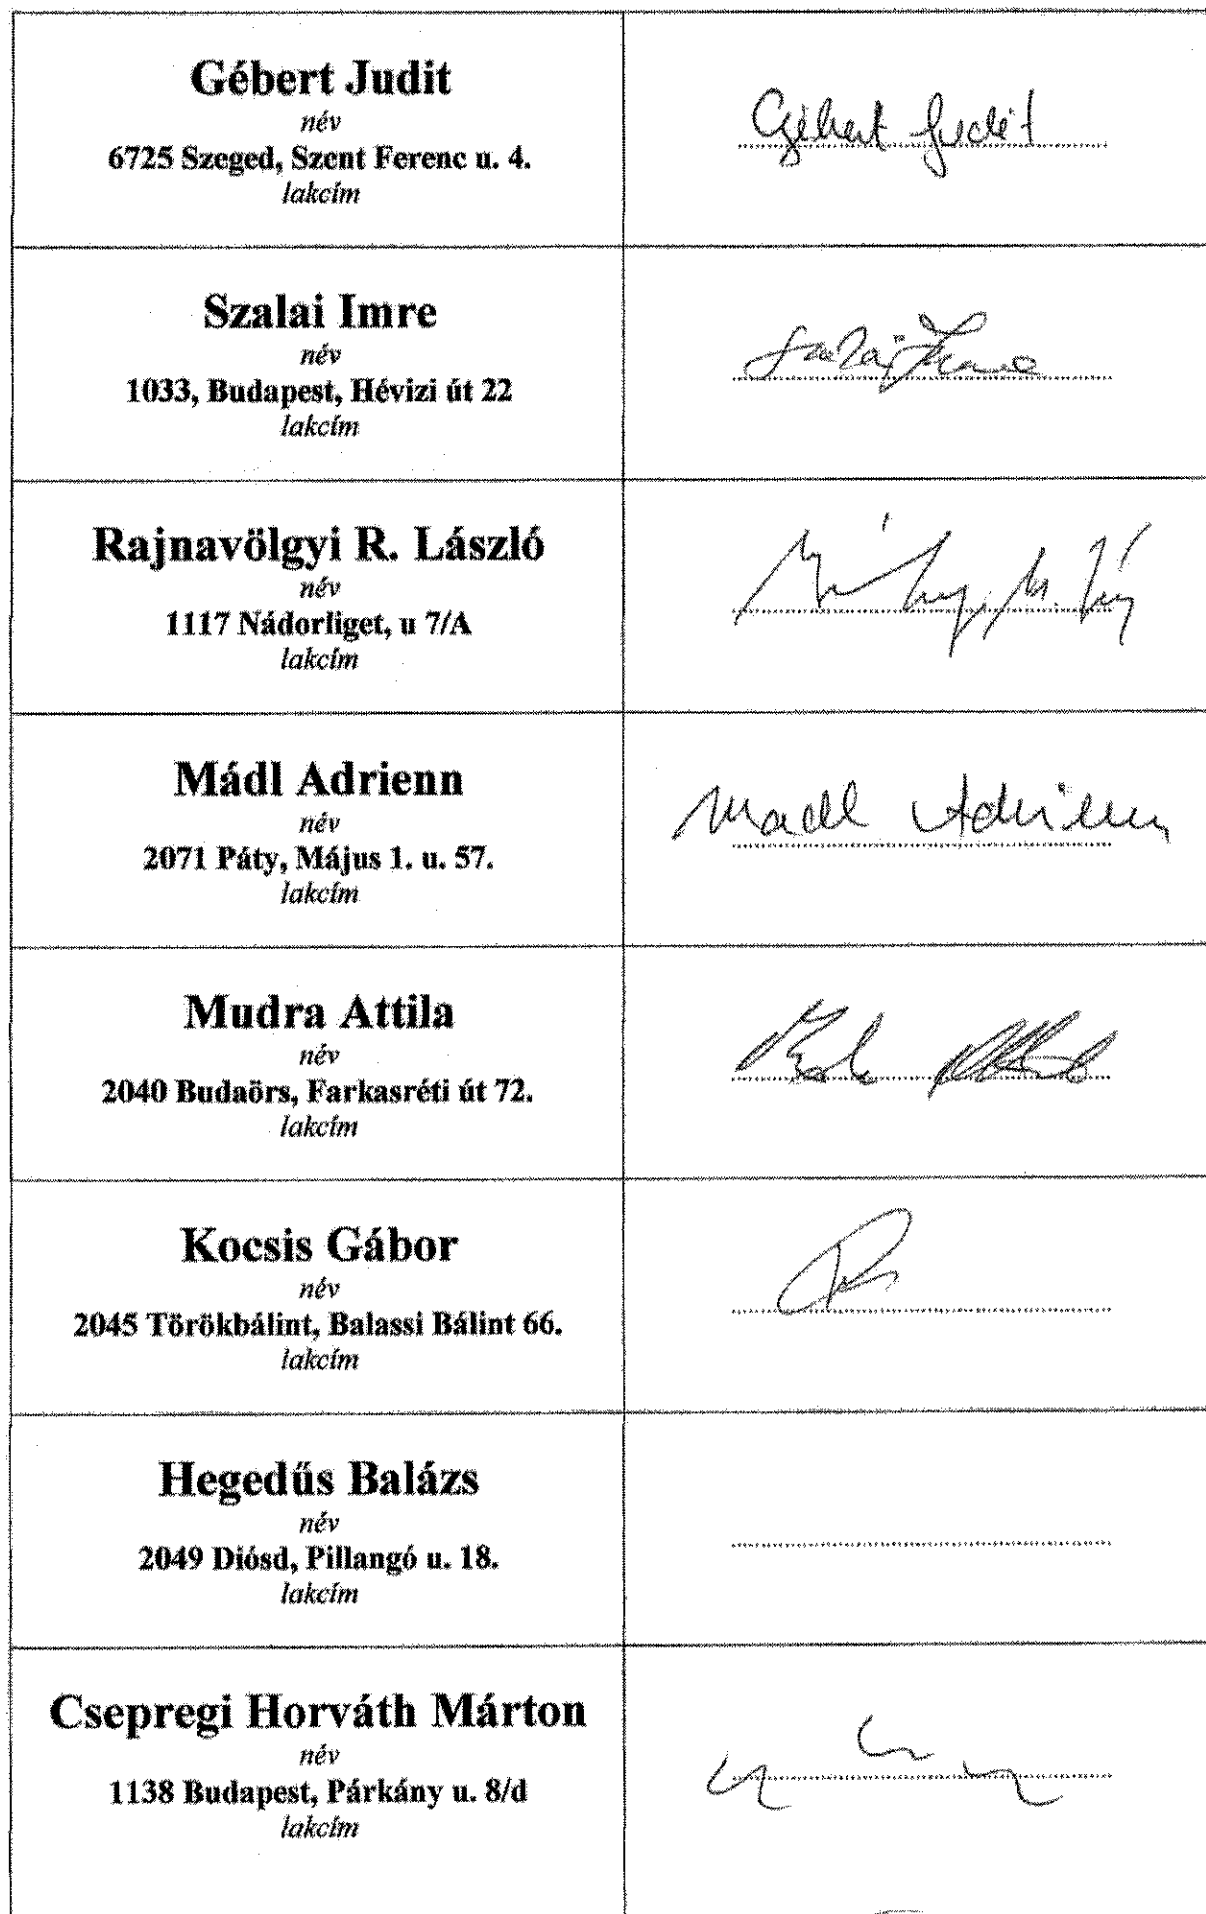 Gébert Judit
Gébert Judit
név
6725 Szeged, Szent Ferenc u. 4.
lakcím
Szalai Imre
Szalai Imre
név
1033, Budapest, Hévizi út 22
lakcím
Rajnavölgyi R. László
név
1117 Nádorliget, u 7/A
lakcím
Mádl Adrienn
Madl Adrienn
név
2071 Páty, Május 1. u. 57.
lakcím
Mudra Attila
név
2040 Budaörs, Farkasréti út 72.
lakcím
Kocsis Gábor
név
2045 Törökbálint, Balassi Bálint 66.
lakcím
Hegedűs Balázs
név
2049 Diósd, Pillangó u. 18.
lakcím
Csepregi Horváth Márton
név
1138 Budapest, Párkány u. 8/d
lakcím